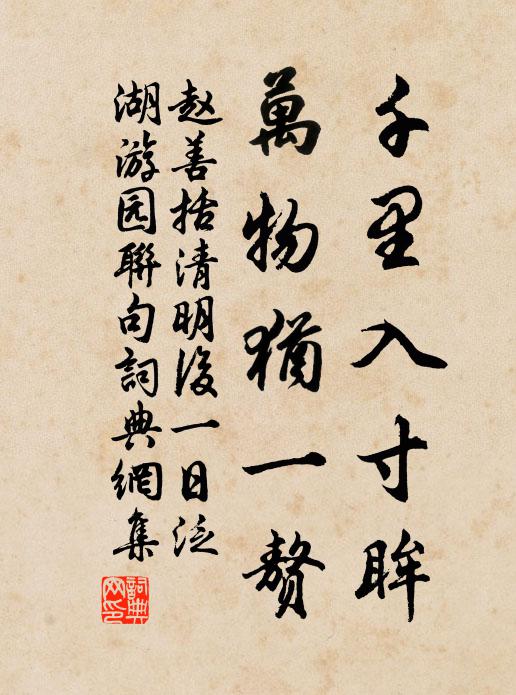 千里入寸眸
萬物猶一贅
赵善括清明後一日泛
湖游园聯句詞典網集
詞典
网印